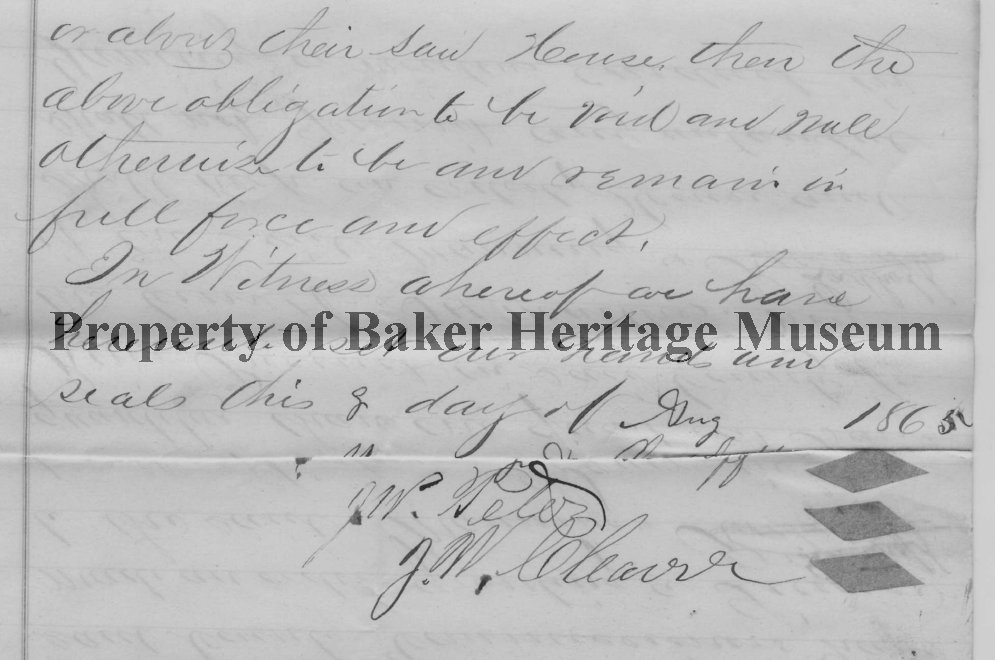 or about their said House, then the
above obligation to be void and null
otherwise to be and remain in
full force and effect.
In Witness whereof we have
Property of Baker Heritage Museum
hereunto set our hands and
seals this 8 day of Aug 1865
J.W.
J.W. Cleaver